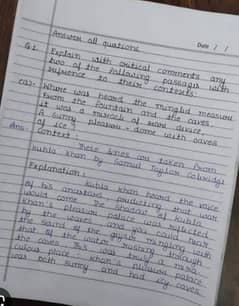 Date / /
Answer all questions
Q.1. Explain with critical comments any
two of the following passages with
reference to their contexts:
(a)- Where was heard the mingled measure
From the fountain and the caves.
it was a miracle of rare device,
A sunny pleasure - dome with caves
of ice!
Ans. Context -
These lines are taken from
Kubla Khan by Samual Taylor Coleridge
Explanation:
Kubla khan heard the voice
of his ancestors, predicting that war
would come. The shadow of Kubla
Khan's pleasure palace was reflected
by the waves and you can hear
the sound of the geyser mingling with
that of the water through
the caves. This was truly a mira-
culous place: khan's pleasure palace
was both sunny and had icy caves